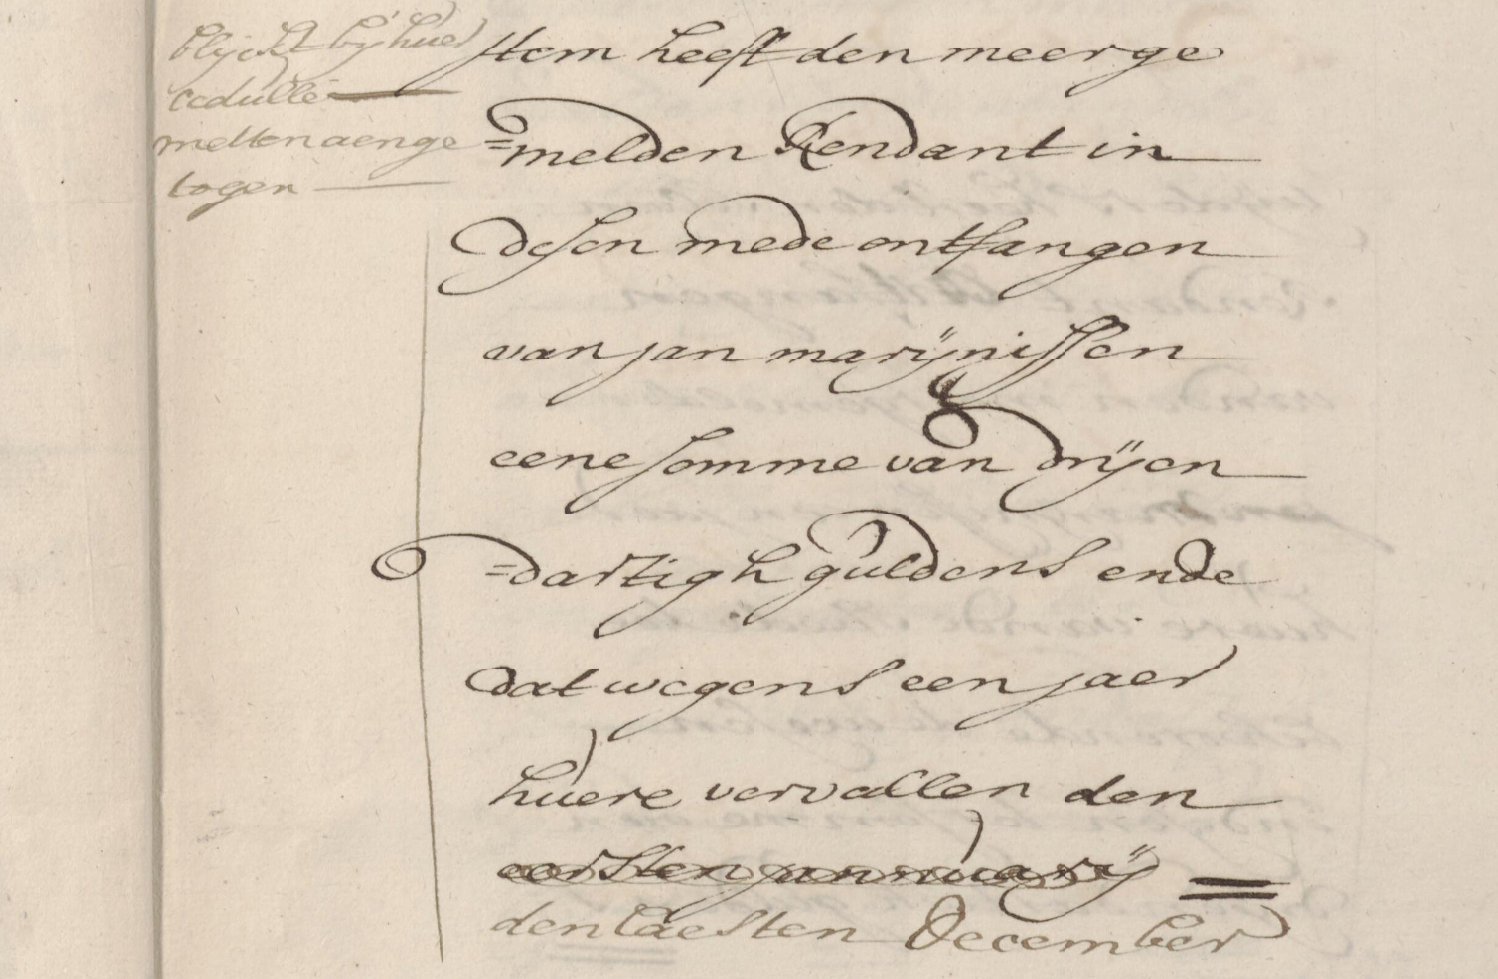 blijckt bij huer
cedulle
metten aenge
togen
Item heeft den meerge
=melden Rendant in
desen mede ontfangen
van jan marijnissen
eene somme van drijen
=dartigh guldens ende
dat wegens een jaer
huere vervallen den
eersten jannuarij
den laesten December